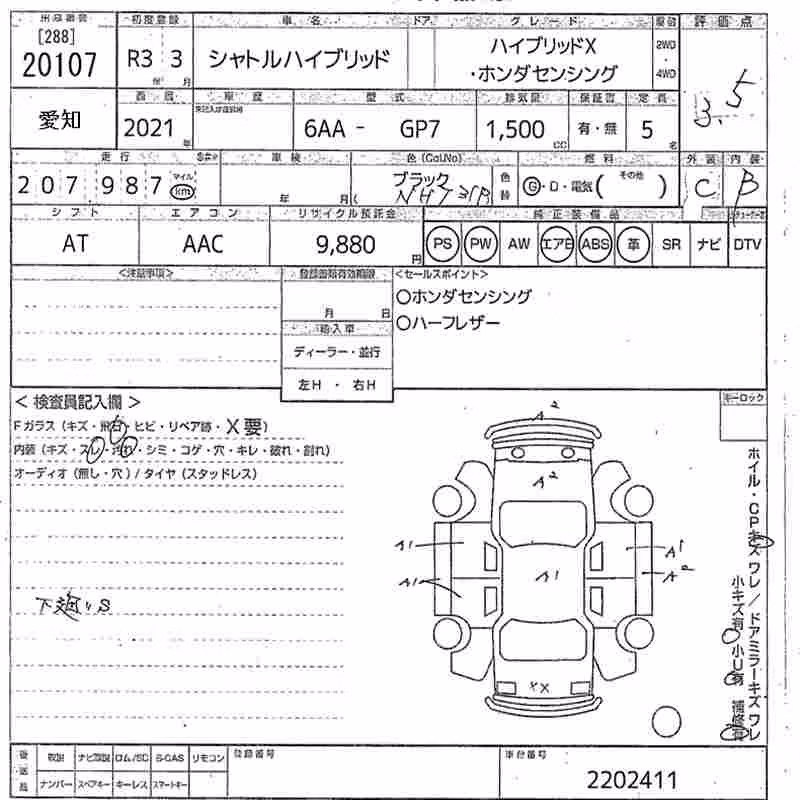 出品番号 初度登録 車名 ドア グレード 駆動 評価点
[288]
20107 R3 3 シャトルハイブリッド ハイブリッドX 2WD
・ホンダセンシング 4WD
年 月
3.5
愛知 西暦 車歴 型式 排気量 保証書 定員
2021 年 6AA - GP7 1,500 CC 有・無 5 名
走行 車検 色(Col.No) 燃料 外装 内装
207987 マイル km 年 月 ( ブラック 色替 G・D・電気( その他 ) C B
NH731P
シフト エアコン リサイクル預託金 純正装備品
AT AAC 9,880 円 PS PW AW エアB ABS 革 SR ナビ DTV
<注意事項> 登録書類有効期限 <セールスポイント>
○ホンダセンシング
月 日
○ハーフレザー
輸入車
ディーラー・並行
左H ・ 右H
キーロック
< 検査員記入欄 >
Fガラス(キズ・飛石・ヒビ・リペア跡・X要)
内装(キズ・スレ・汚れ・シミ・コゲ・穴・キレ・破れ・割れ)
オーディオ(無し・穴)/タイヤ(スタッドレス)
A2
A2
A1 A1 A1
A1 A2
XX
下廻りS
ホイル・CPキズ ワレ/ドアミラーキズ ワレ
小キズ有 小U有 補修有
後送品 取説 ナビ取説 ロム/SC S-GAS リモコン 登録番号 車台番号
ナンバー スペアキー キーレス スマートキー 2202411